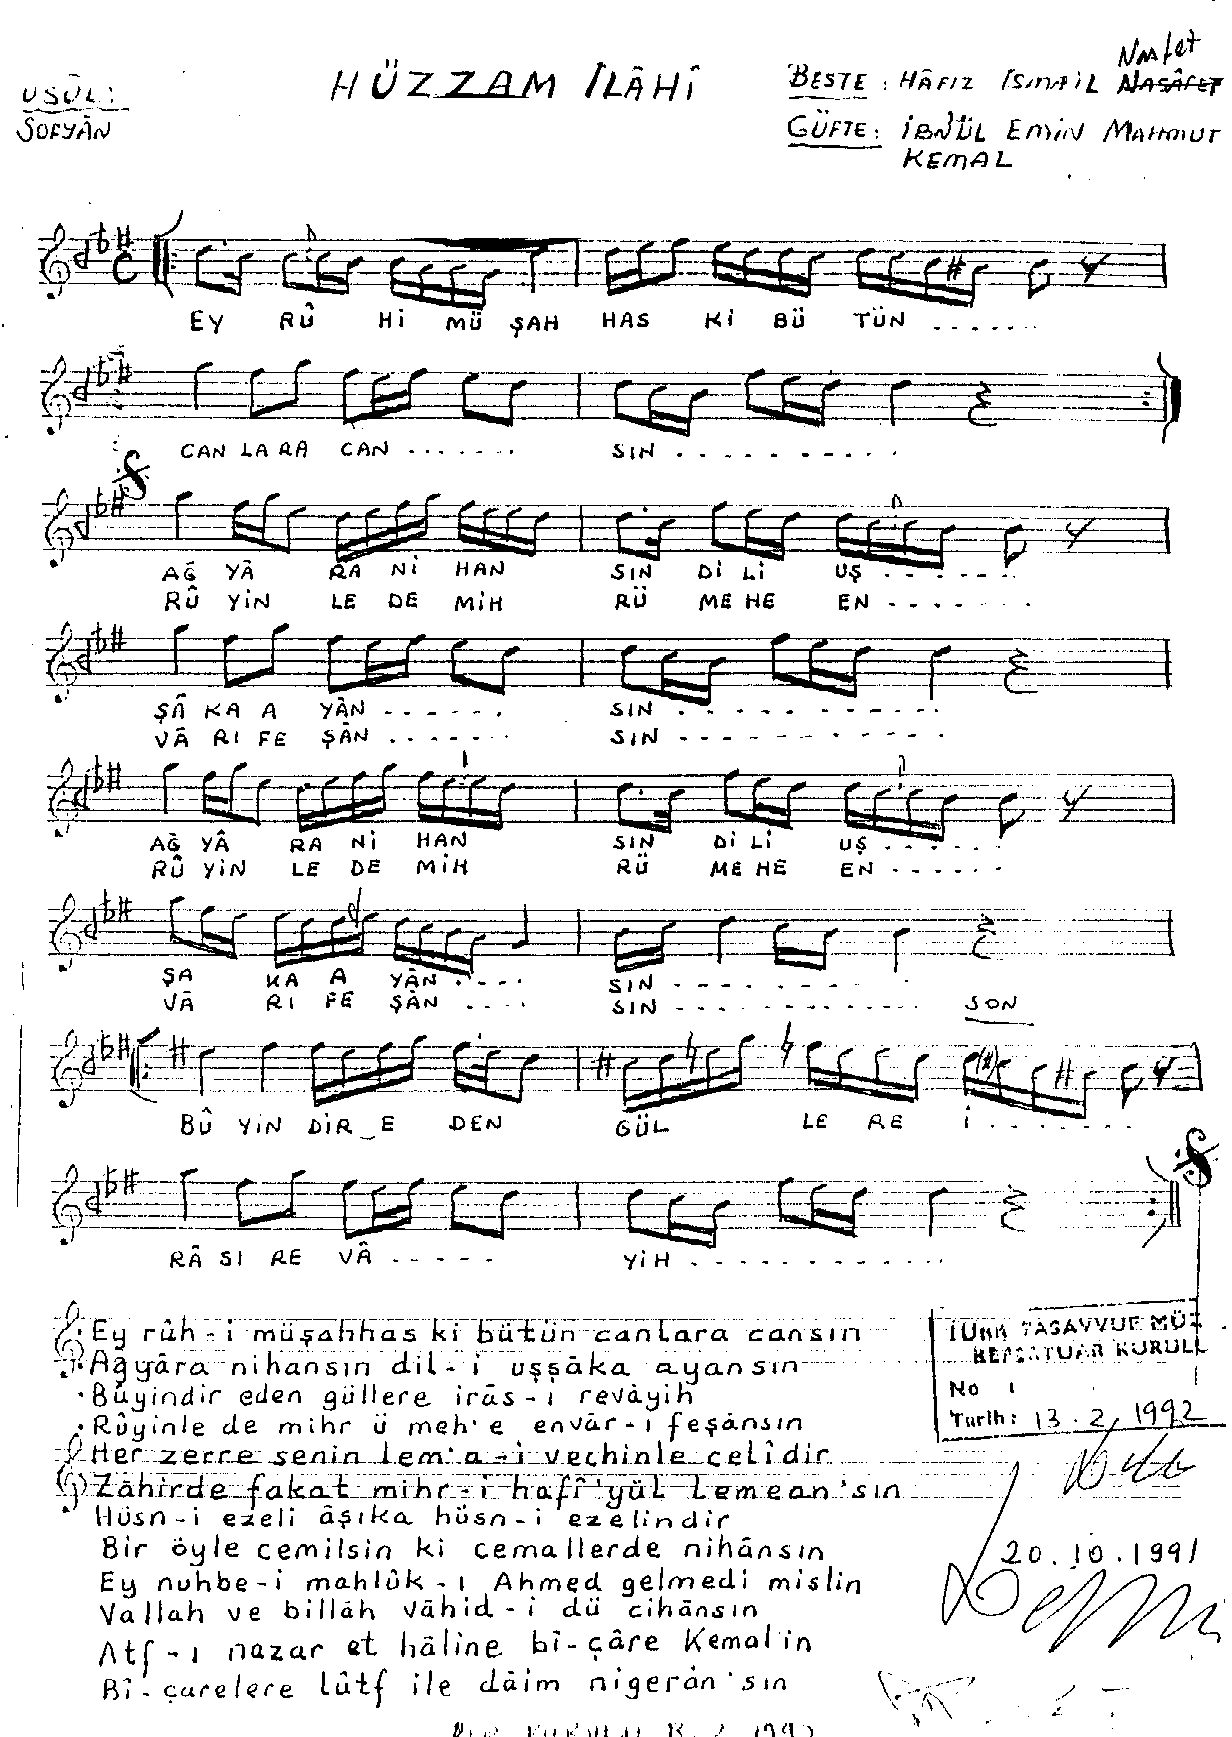 USÛL:
SOFYÂN
HÜZZAM İLÂHÎ
BESTE: HÂFIZ İSMAİL
GÜFTE: İBNÜL EMİN MAHMUT
KEMAL
EY RÛ Hİ MÜ ŞAH HAS Kİ BÜ TÜN ......
CAN LA RA CAN .......
SIN . . . . . . . . .
AĞ YÂ RA Nİ HAN SIN Dİ Lİ UŞ . . . . . .
RÛ YİN LE DE MİH RÜ ME HE EN . . . . . . .
ŞÂ KA A YÂN . . . . . . SIN . . . . . . . . . .
VÂ RI FE ŞÂN . . . . . . SIN . . . . . . . . . .
AĞ YÂ RA Nİ HAN SIN Dİ Lİ UŞ . . . . . .
RÛ YİN LE DE MİH RÜ ME HE EN . . . . . .
ŞA KA A YÂN . . . . SIN . . . . . . . . .
VÂ RI FE ŞÂN . . . . SIN . . . . . . . . . SON
BÛ YİN DİR_E DEN GÜL LE RE İ . . . . . . .
RÂ SI RE VÂ . . . . . YİH . . . . . . . . . . .
Ey rûh-i müşahhas ki bütün canlara cansın
Ağyâra nihansın dil-i uşşâka ayansın
Bûyindir eden güllere irâs-ı revâyih
Rûyinle de mihr ü meh'e envâr-ı feşânsın
Her zerre senin lem'a-i vechinle celîdir
Zâhirde fakat mihr-i hafî'yül lemean'sın
Hüsn-i ezeli âşıka hüsn-i ezelindir
Bir öyle cemilsin ki cemallerde nihânsın
Ey nuhbe-i mahlûk-ı Ahmed gelmedi mislin
Vallah ve billâh vâhid-i dü cihânsın
Atf-ı nazar et hâline bî-çâre Kemal'in
Bî-çarelere lûtf ile dâim nigerân'sın
TÜRK TASAVVUF MÜZ
REPERTUAR KURULU
No :
Tarih: 13.2.1992
20.10.1991